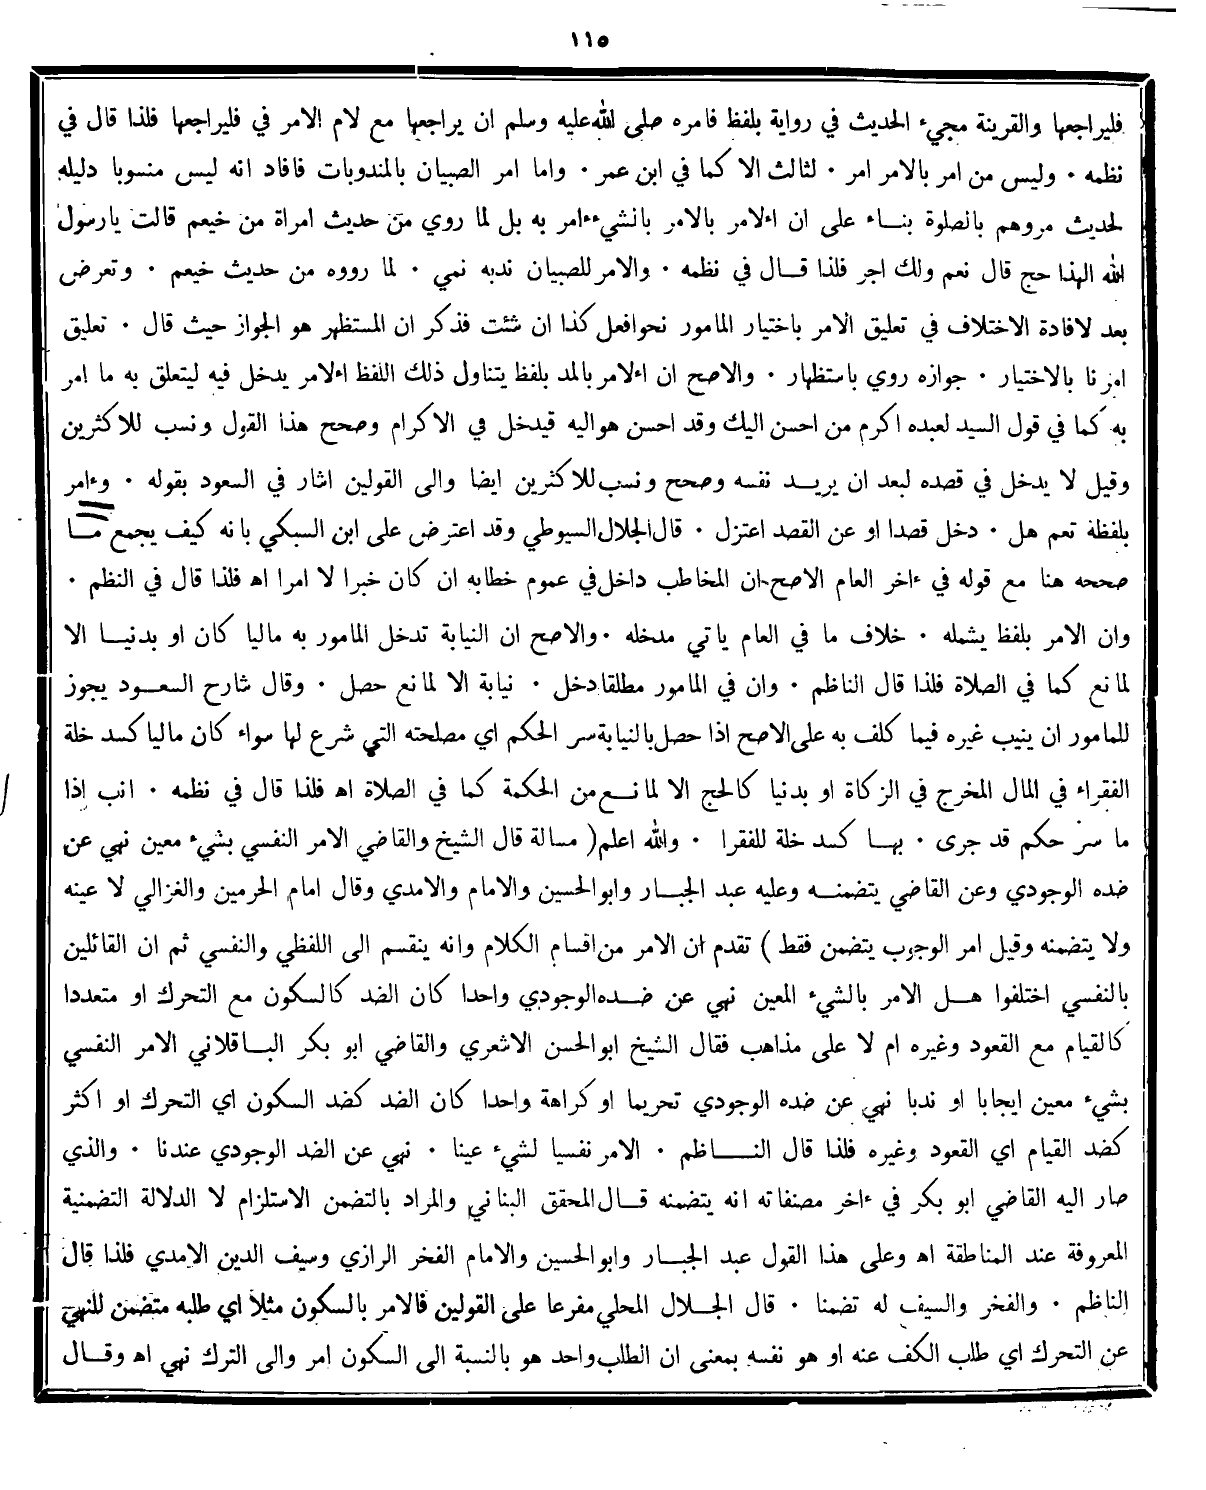 ١١٥
فليراجعها والقرينة مجيء الحديث في رواية بلفظ فامره صلى الله عليه وسلم ان يراجعها مع لام الامر في فليراجعها فلذا قال في
نظمه • وليس من امر بالامر امر • لثالث الا كما في ابن عمر • واما امر الصبيان بالمندوبات فافاد انه ليس منسوبا دليله
لحديث مروهم بالصلوة بنـاء على ان الامر بالامر بالشيء ءامر به بل لما روي من حديث امراة من خيعم قالت يارسول
الله الهذا حج قال نعم ولك اجر فلذا قـال في نظمه • والامر للصبيان ندبه نمي • لما رووه من حديث خيعم • وتعرض
بعد لافادة الاختلاف في تعليق الامر باختيار المامور نحو افعل كذا ان شئت فذكر ان المستظهر هو الجواز حيث قال • تعليق
امرنا بالاختيار • جوازه روي باستظهار • والاصح ان اءلامر بالمد بلفظ يتناول ذلك اللفظ اءلامر يدخل فيه ليتعلق به ما امر
به كما في قول السيد لعبده اكرم من احسن اليك وقد احسن هو اليه فيدخل في الاكرام وصحح هذا القول ونسب للاكثرين
وقيل لا يدخل في قصده لبعد ان يريـد نفسه وصحح ونسب للاكثرين ايضا والى القولين اثار في السعود بقوله • وءامر
بلفظة تعم هل • دخل قصدا او عن القصد اعتزل • قال الجلال السيوطي وقد اعترض على ابن السبكي بانه كيف يجمع مـا
صححه هنا مع قوله في ءاخر العام الاصح ان المخاطب داخل في عموم خطابه ان كان خبرا لا امرا اه فلذا قال في النظم •
وان الامر بلفظ يشمله • خلاف ما في العام ياتي مدخله • والاصح ان النيابة تدخل المامور به ماليا كان او بدنيـا الا
لمانع كما في الصلاة فلذا قال الناظم • وان في المامور مطلقا دخل • نيابة الا لمانع حصل • وقال شارح السعـود يجوز
للمامور ان ينيب غيره فيما كلف به على الاصح اذا حصل بالنيابة سر الحكم اي مصلحته التي شرع لها سواء كان ماليا كسد خلة
الفقراء في المال المخرج في الزكاة او بدنيا كالحج الا لمانـع من الحكمة كما في الصلاة اه فلذا قال في نظمه • انب إذا
ما سر حكم قد جرى • بهـا كسد خلة للفقرا • والله اعلم ( مسالة قال الشيخ والقاضي الامر النفسي بشيء معين نهي عن
ضده الوجودي وعن القاضي يتضمنـه وعليه عبد الجبـار وابو الحسين والامام والامدي وقال امام الحرمين والغزالي لا عينه
ولا يتضمنه وقيل امر الوجوب يتضمن فقط ) تقدم ان الامر من اقسام الكلام وانه ينقسم الى اللفظي والنفسي ثم ان القائلين
بالنفسي اختلفوا هـل الامر بالشيء المعين نهي عن ضـده الوجودي واحدا كان الضد كالسكون مع التحرك او متعددا
كالقيام مع القعود وغيره ام لا على مذاهب فقال الشيخ ابو الحسن الاشعري والقاضي ابو بكر البـاقلاني الامر النفسي
بشيء معين ايجابا او ندبا نهي عن ضده الوجودي تحريما او كراهة واحدا كان الضد كضد السكون اي التحرك او اكثر
كضد القيام اي القعود وغيره فلذا قال النـاظم • الامر نفسيا لشيء عينا • نهي عن الضد الوجودي عندنا • والذي
صار اليه القاضي ابو بكر في ءاخر مصنفاته انه يتضمنه قـال المحقق البناني والمراد بالتضمن الاستلزام لا الدلالة التضمنية
المعروفة عند المناطقة اه وعلى هذا القول عبد الجبـار وابو الحسين والامام الفخر الرازي وسيف الدين الامدي فلذا قال
الناظم • والفخر والسيف له تضمنا • قال الجـلال المحلي مفرعا على القولين فالامر بالسكون مثلا اي طلبه متضمن للنهي
عن التحرك اي طلب الكف عنه او هو نفسه بمعنى ان الطلب واحد هو بالنسبة الى السكون امر والى الترك نهي اه وقـال